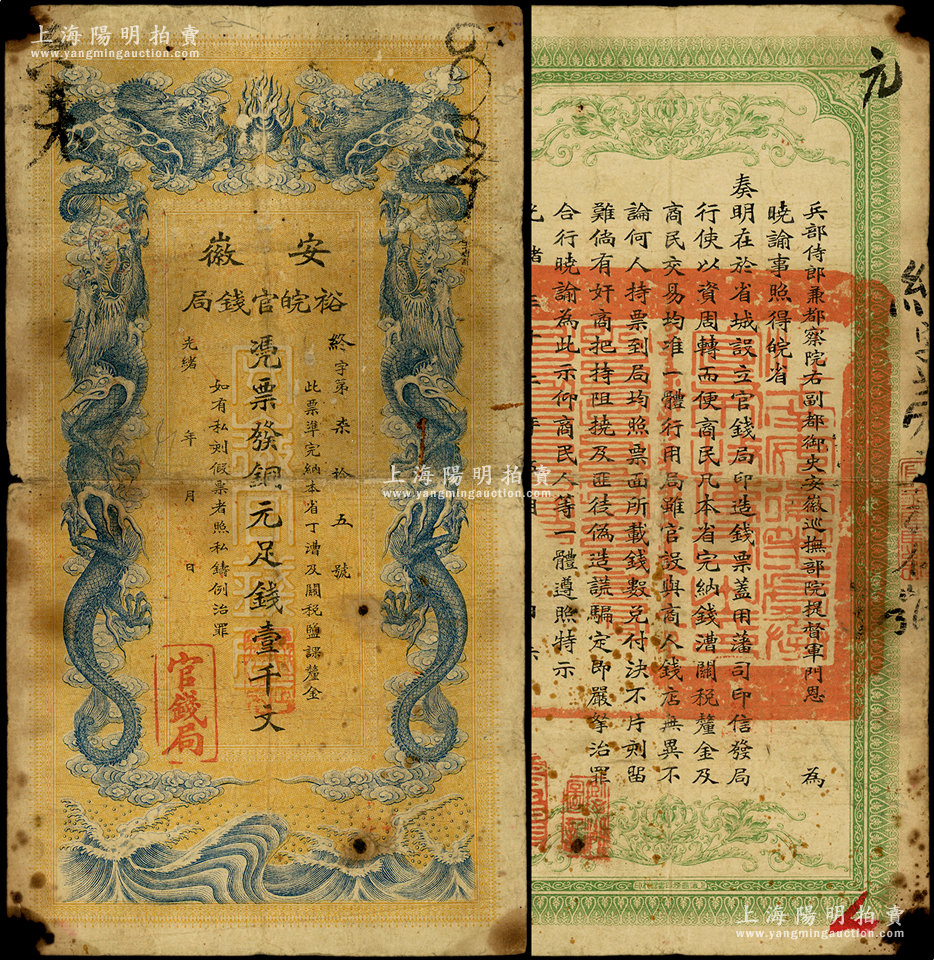 上海陽明拍賣
www.yangmingauction.com
安徽
裕皖官錢局
終字第柒拾五號
此票準完納本省丁漕及關稅鹽課釐金
憑票發銅元足錢壹千文
如有私刻假票者照私鑄例治罪
光緒 年 月 日
官錢局
元
兵部侍郎兼都察院右副都御史安徽巡撫部院提督軍門恩 為
曉諭事照得皖省
奏明在於省城設立官錢局印造錢票蓋用藩司印信發局
行使以資周轉而便商民凡本省完納錢漕關稅釐金及
商民交易均准一體行用局雖官設與商人錢店無異不
論何人持票到局均照票面所載錢數兌付決不片刻留
難倘有奸商把持阻撓及匪徒偽造謊騙定即嚴拏治罪
合行曉諭為此示仰商民人等一體遵照特示
光緒
上海陽明拍賣
www.yangmingauction.com
上海陽明拍賣
www.yangmingauction.com